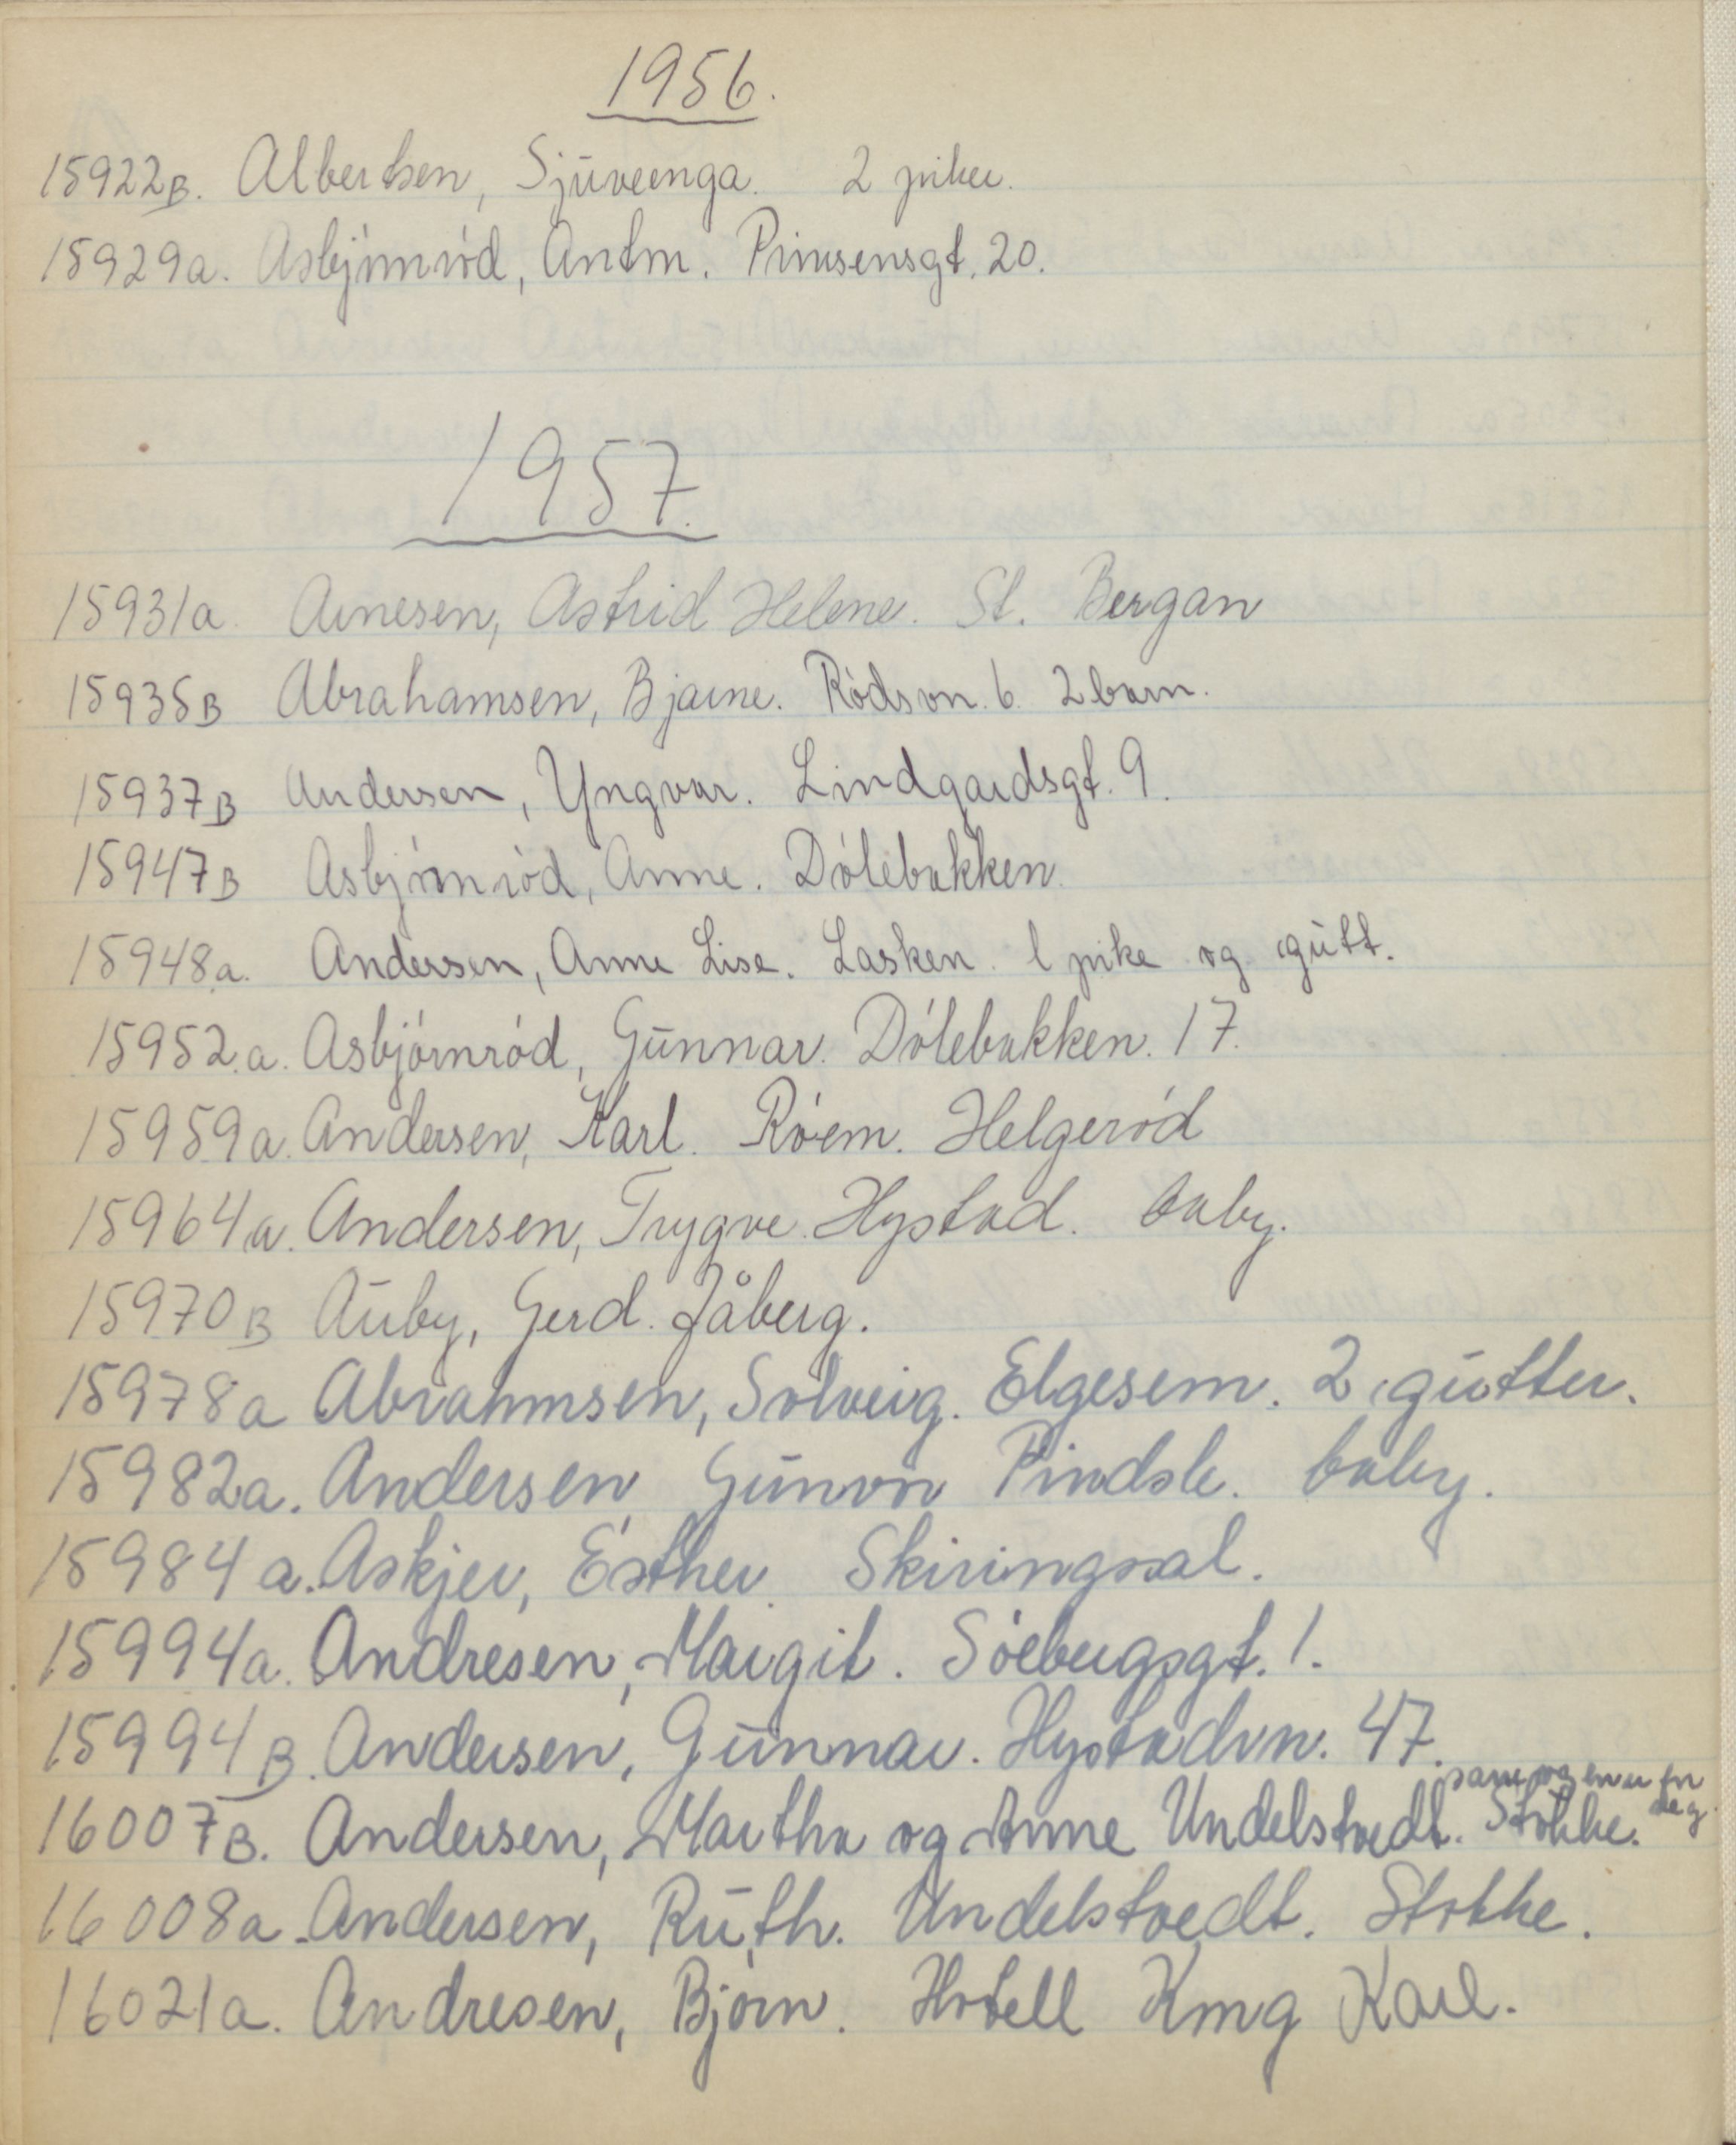 1956.
15922B. Albertsen, Sjūveenga. 2 piker.
15929a. Asbjórnród, Antm. Prinsensgt. 20.
1957.
15931a. Arnesen, Astrid Helene. St. Bergan
15935B Abrahamsen, Bjarne. Ródsvn. 6. 2 barn.
15937B Andersen, Yngvar. Lindgardsgt. 9.
15947B Asbjórnród, Anne. Dólebakken.
15948a. Andersen, Anne Lise. Lasken. 1 pike og gūtt.
15952.a. Asbjórnród, Gūnnar. Dólebakken. 17.
15959a. Andersen, Karl. Róem. Helgeród
15964a. Andersen, Trygve. Hystad. baby.
15970B Aūby, Gerd. Jåberg.
15978a Abrahmsen, Solveig. Elgesem. 2 gūtter.
15982a. Andersen, Gūnvor Pindsle. baby.
15984a. Askjer, Esther. Skiringssal.
15994a. Andresen, Margit. Sóebergsgt. 1.
15994B. Andersen, Gūnnar. Hystadvn. 47.
16007B. Andersen, Martha og Anne Undelstvedt. Stokke.
16008a. Andersen, Rūth. Undelstvedt. Stokke.
16021a. Andresen, Bjórn. Hotell Kong Karl.